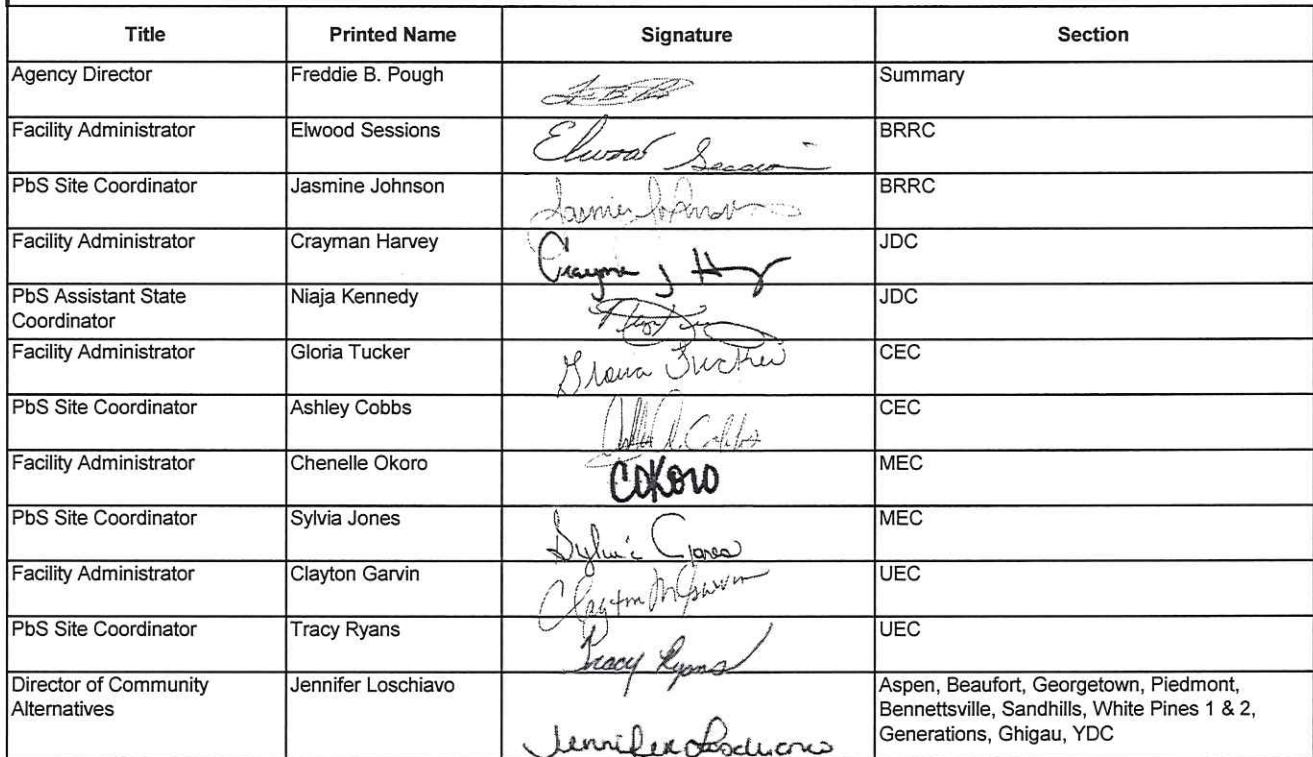 Title Printed Name Signature Section
Agency Director Freddie B. Pough Summary
Facility Administrator Elwood Sessions Elwood Sessions BRRC
PbS Site Coordinator Jasmine Johnson Jasmine Johnson BRRC
Facility Administrator Crayman Harvey Crayman J H JDC
PbS Assistant State Niaja Kennedy JDC
Coordinator
Facility Administrator Gloria Tucker Gloria Tucker CEC
PbS Site Coordinator Ashley Cobbs Cobbs CEC
Facility Administrator Chenelle Okoro COKORO MEC
PbS Site Coordinator Sylvia Jones Sylvia Jones MEC
Facility Administrator Clayton Garvin Clayton M Garvin UEC
PbS Site Coordinator Tracy Ryans Tracy Ryans UEC
Director of Community Jennifer Loschiavo Aspen, Beaufort, Georgetown, Piedmont,
Alternatives Bennettsville, Sandhills, White Pines 1 & 2,
Jennifer Loschiavo Generations, Ghigau, YDC